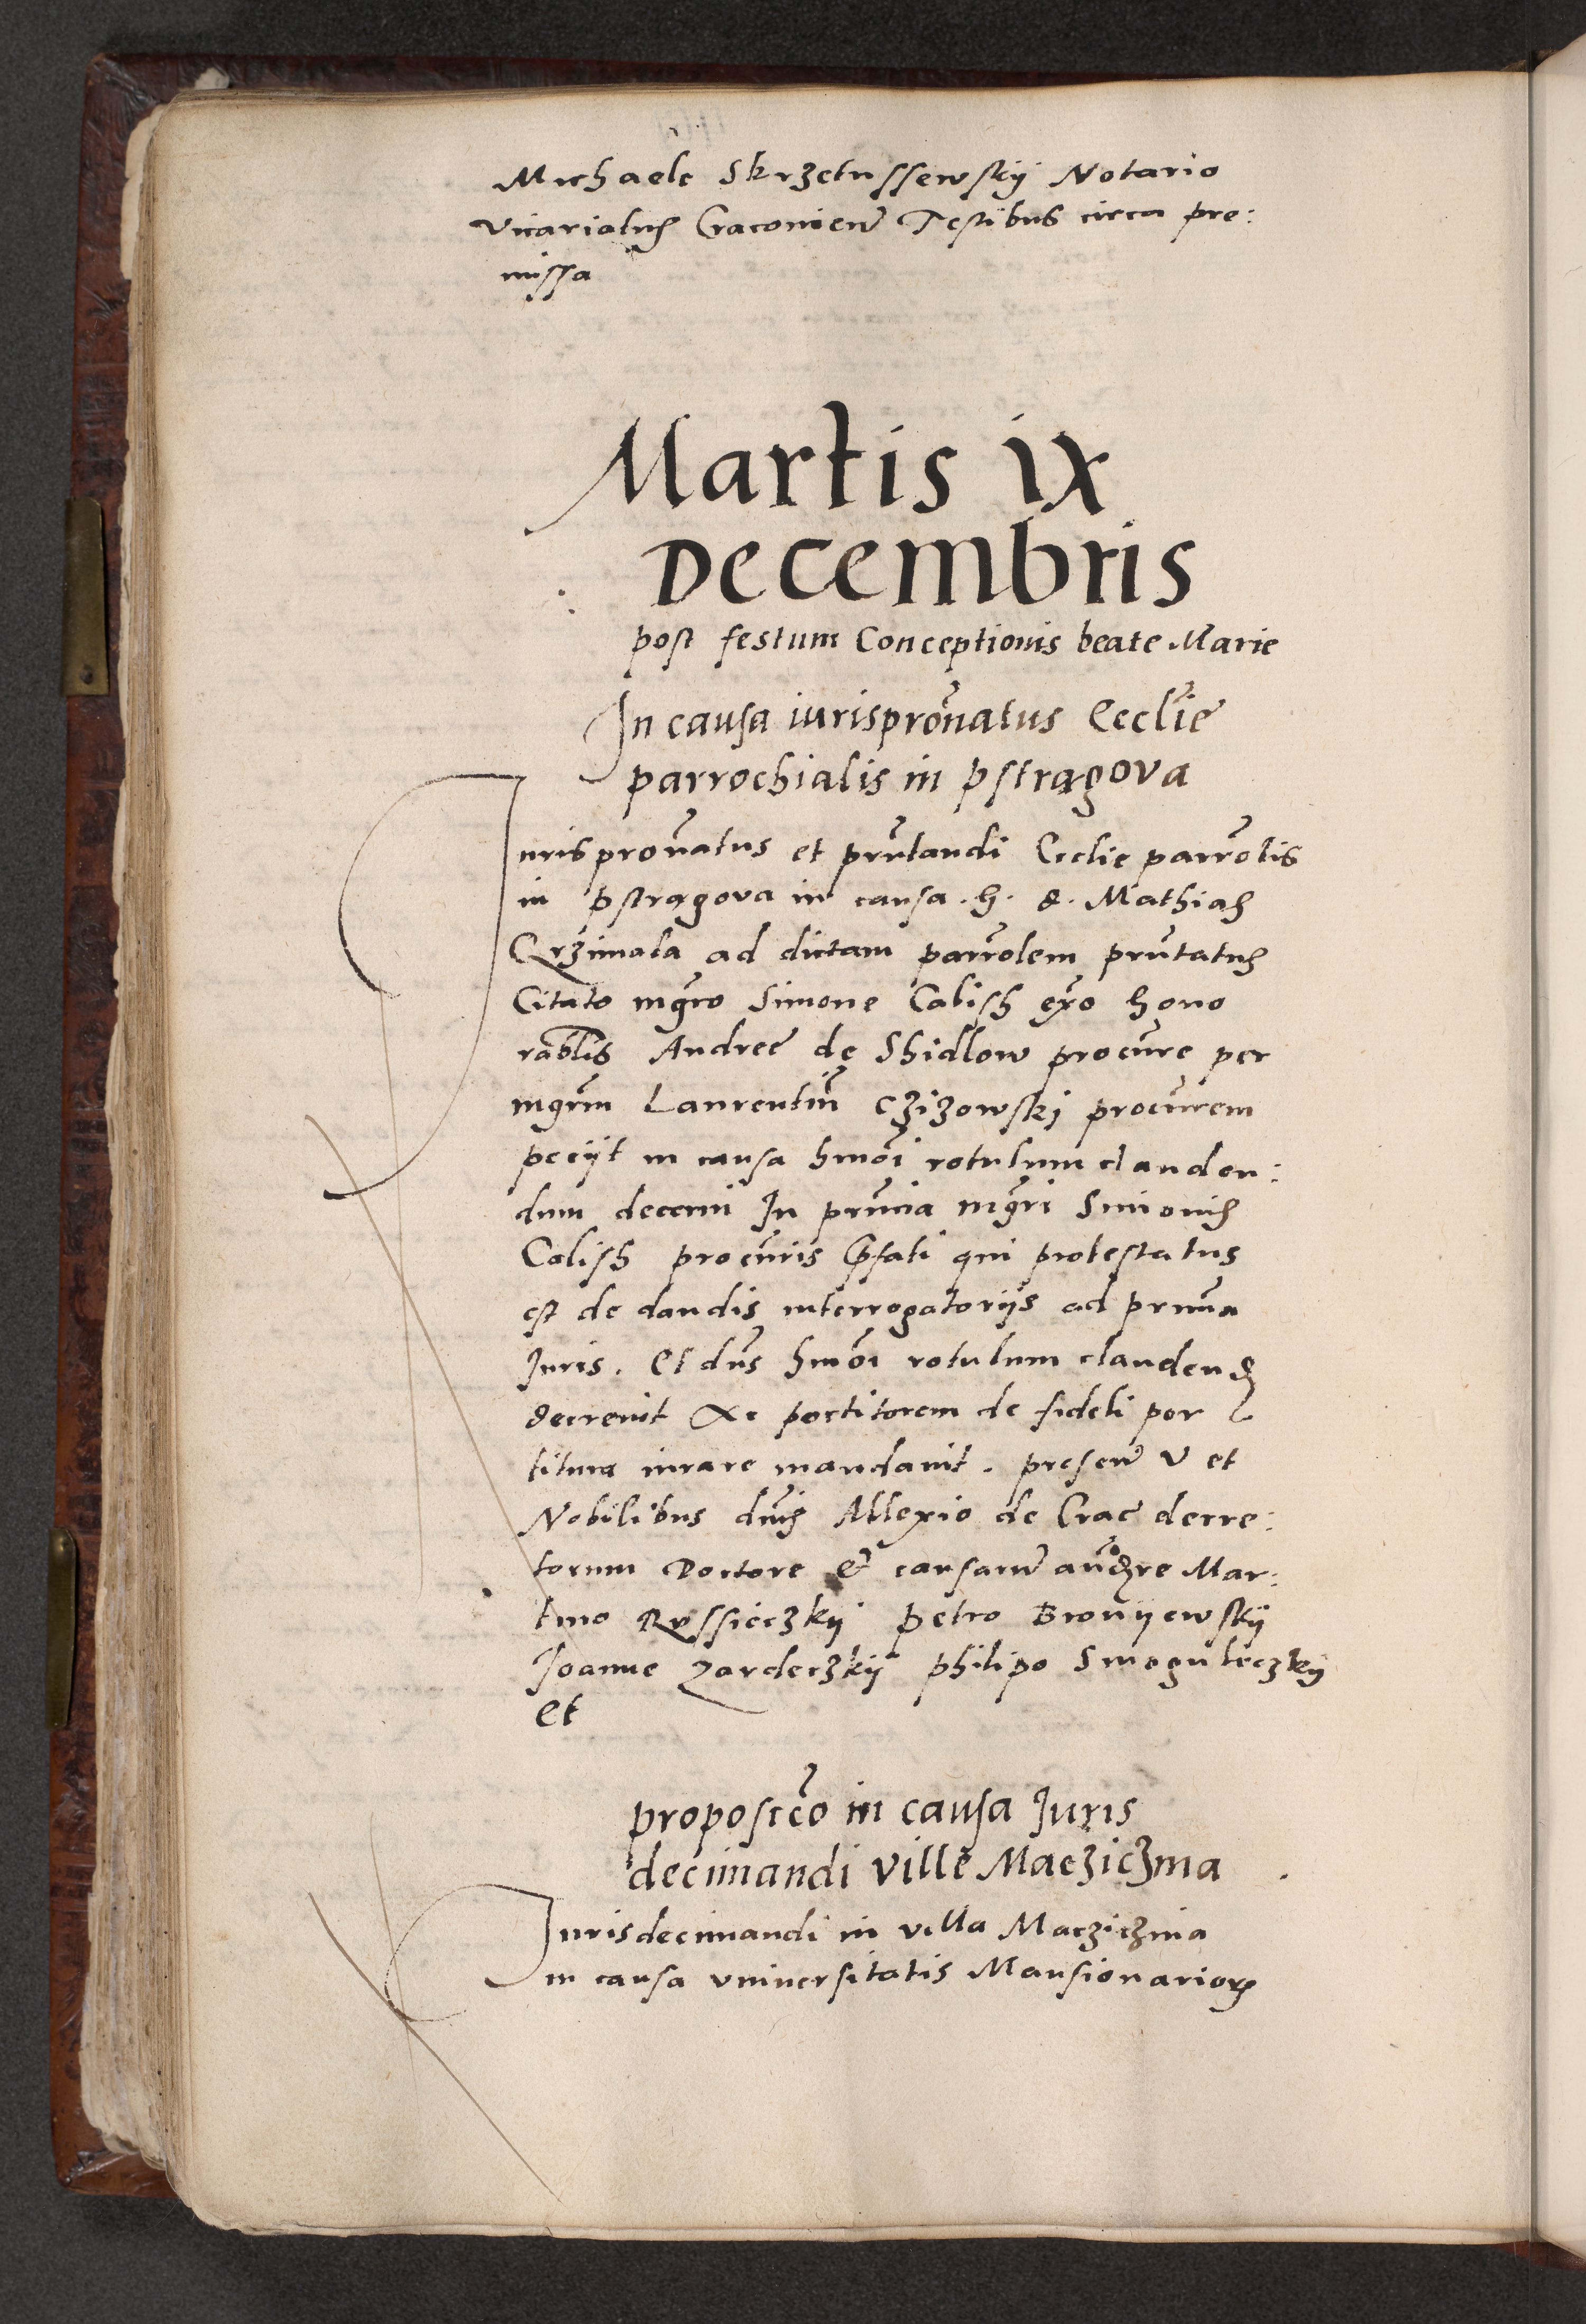 Michaele Skrzetussewskij Notario
Vicariatus Cracovien Testibus circa pre:
missa
Martis ix
Decembris
post festum Conceptionis beate Marie
In causa iurisproñatus Ecclie
parrochialis in Pstragova
Juris proñatus et pñtandi Ecclie parrolis
in Pstragova in causa .h. d. Mathias
Crzimala ad dictam parrolem pñtatus
Citato mgro Simone Calish exo hono
rablis Andree de Shidlow procure per
mgrm Laurentiũ Czizowski procurem
peciit in causa hmoi rotulum clauden:
dum decerni In pñcia mgri Simonis
Colish procuris Pfati qui protestatus
est de dandis interrogatorijs ad prima
Juris. Et dns hmoi rotulum claudend
decrevit Ac portitorem de fideli por
titura iurare mandavit. presen v et
Nobilibus dnis Allexio de Crac decre:
torum Doctore et causarum audre Mar:
tino Rossieczkij Petro Bronijewskij
Joanne Zardeczkij Philipo Smoguleczkij
Et
proposicõ in causa Juris
decimandi ville Macziczma
Jurisdecimandi in villa Macziczma
in causa universitatis Mansionarior